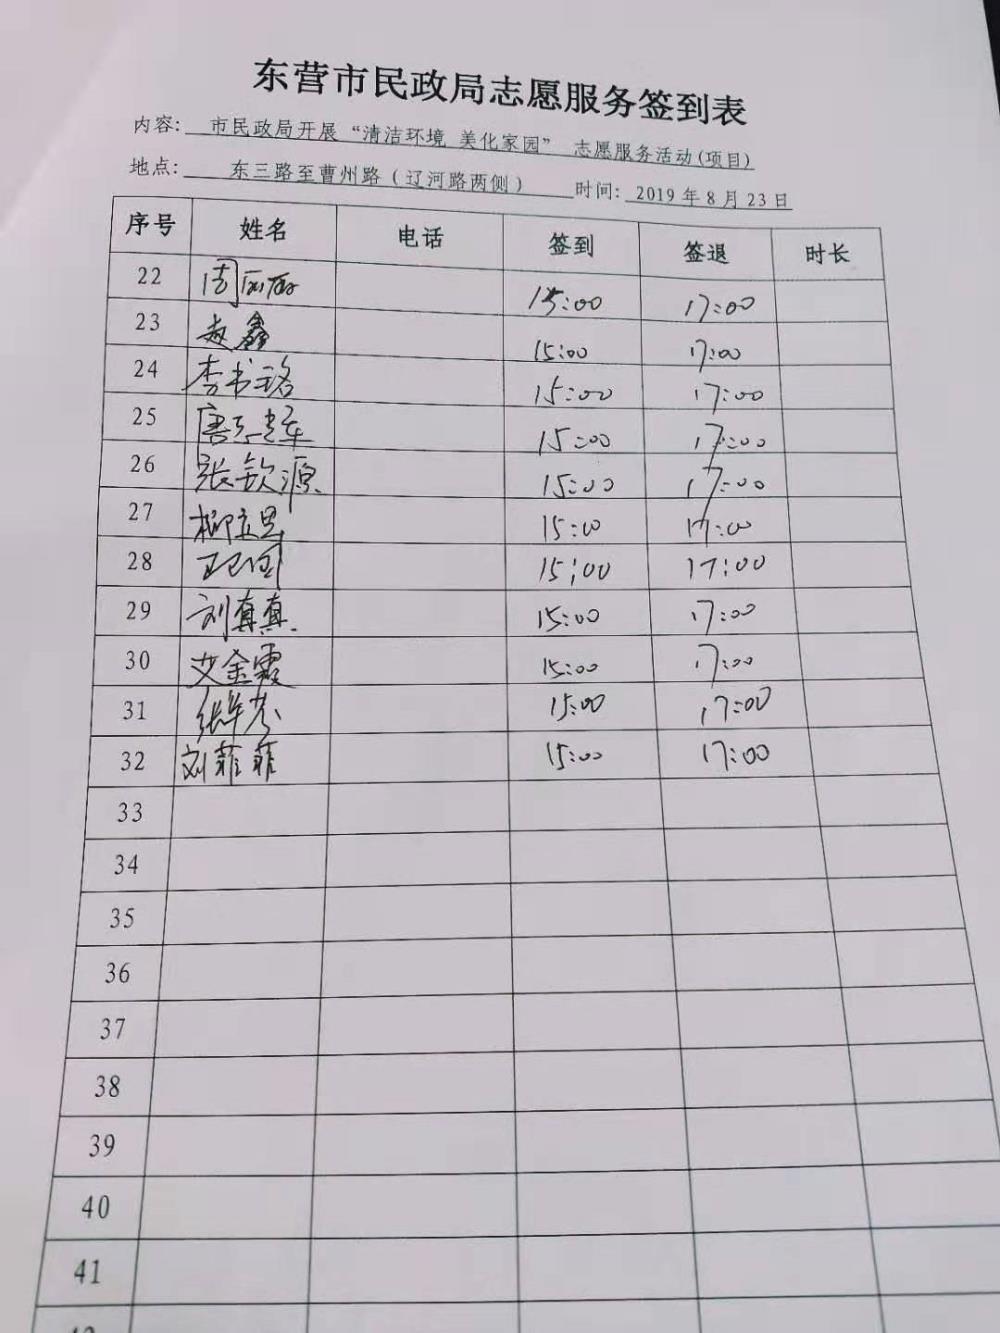 东营市民政局志愿服务签到表
内容: 市民政局开展“清洁环境 美化家园” 志愿服务活动(项目)
地点: 东三路至曹州路（辽河路两侧） 时间: 2019年8月23日
序号 姓名 电话 签到 签退 时长
22 周丽丽 15:00 17:00
23 赵鑫 15:00 17:00
24 李书珞 15:00 17:00
25 唐 15:00 17:00
26 张钦源 15:00 17:00
27 柳立思 15:00 17:00
28 王卫国 15:00 17:00
29 刘真真 15:00 17:00
30 艾金霞 15:00 17:00
31 张 15:00 17:00
32 刘菲菲 15:00 17:00
33
34
35
36
37
38
39
40
41